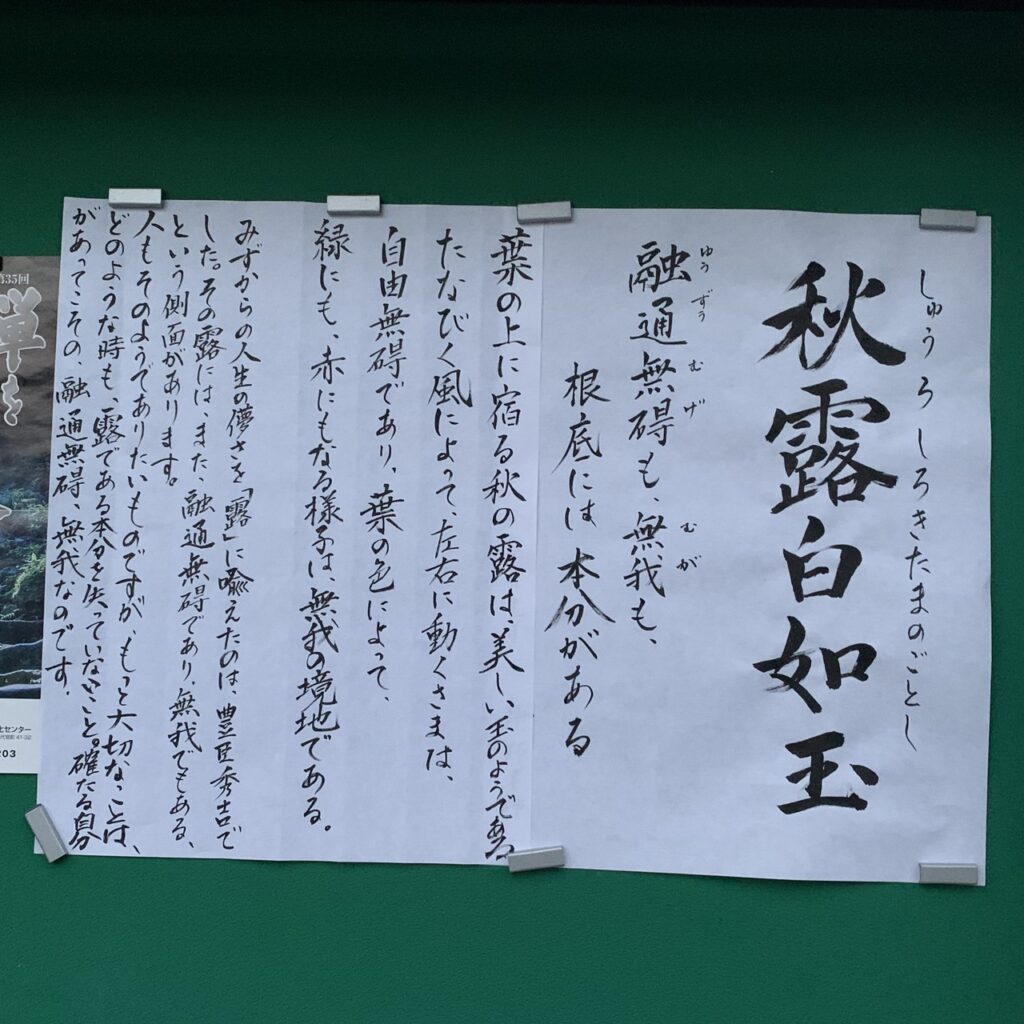 秋露白如玉
しゅうろしろきたまのごとし
融通無碍も、無我も、
ゆうずうむげ
むが
根底には本分がある
葉の上に宿る秋の露は、美しい玉のようである
たなびく風によって、左右に動くさまは、
自由無碍であり、葉の色によって、
緑にも、赤にもなる様子は、無我の境地である。
みずからの人生の儚さを「露」に喩えたのは、豊臣秀吉で
した。その露には、また、融通無碍であり、無我でもある、
という側面があります。
人もそのようでありたいものですが、もっと大切なことは、
どのような時も、露である本分を失っていないこと。確たる自分
があってこその、融通無碍、無我なのです。
第35回
センター
41-32
203